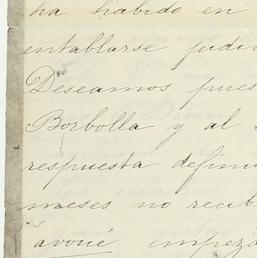 ha habido en
entablarse judi
Deseamos pues
Borbolla y al
respuesta defini
meses no recib
avoué empeza